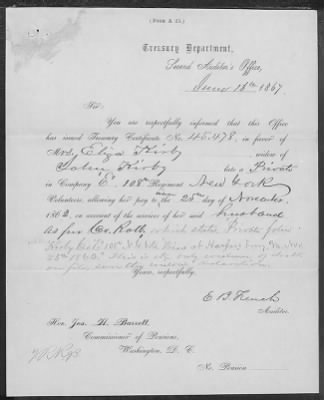 (Form A 15.)
Treasury Department,
Second Auditor's Office,
June 18th 1867.
Sir:
You are respectfully informed that this Office
has issued Treasury Certificate No. 45.478, in favor of
Mrs. Eliza Kirby widow of
John Kirby late a Private
in Company E, 108th Regiment New York
Volunteers, allowing her pay to the 25th day of November,
1862, on account of the services of her said husband
as per Co. Rolls, which state Private John
Kirby Co E 108th N.Y. Vols Died at Harpers Ferry Va. Nov.
25th 1862. This is the only evidence of death
on file, save the widows declaration.
Yours, respectfully,
E B French
Auditor.
Hon. Jos. H. Barrett,
Commissioner of Pensions,
Washington, D. C.
No. Pension